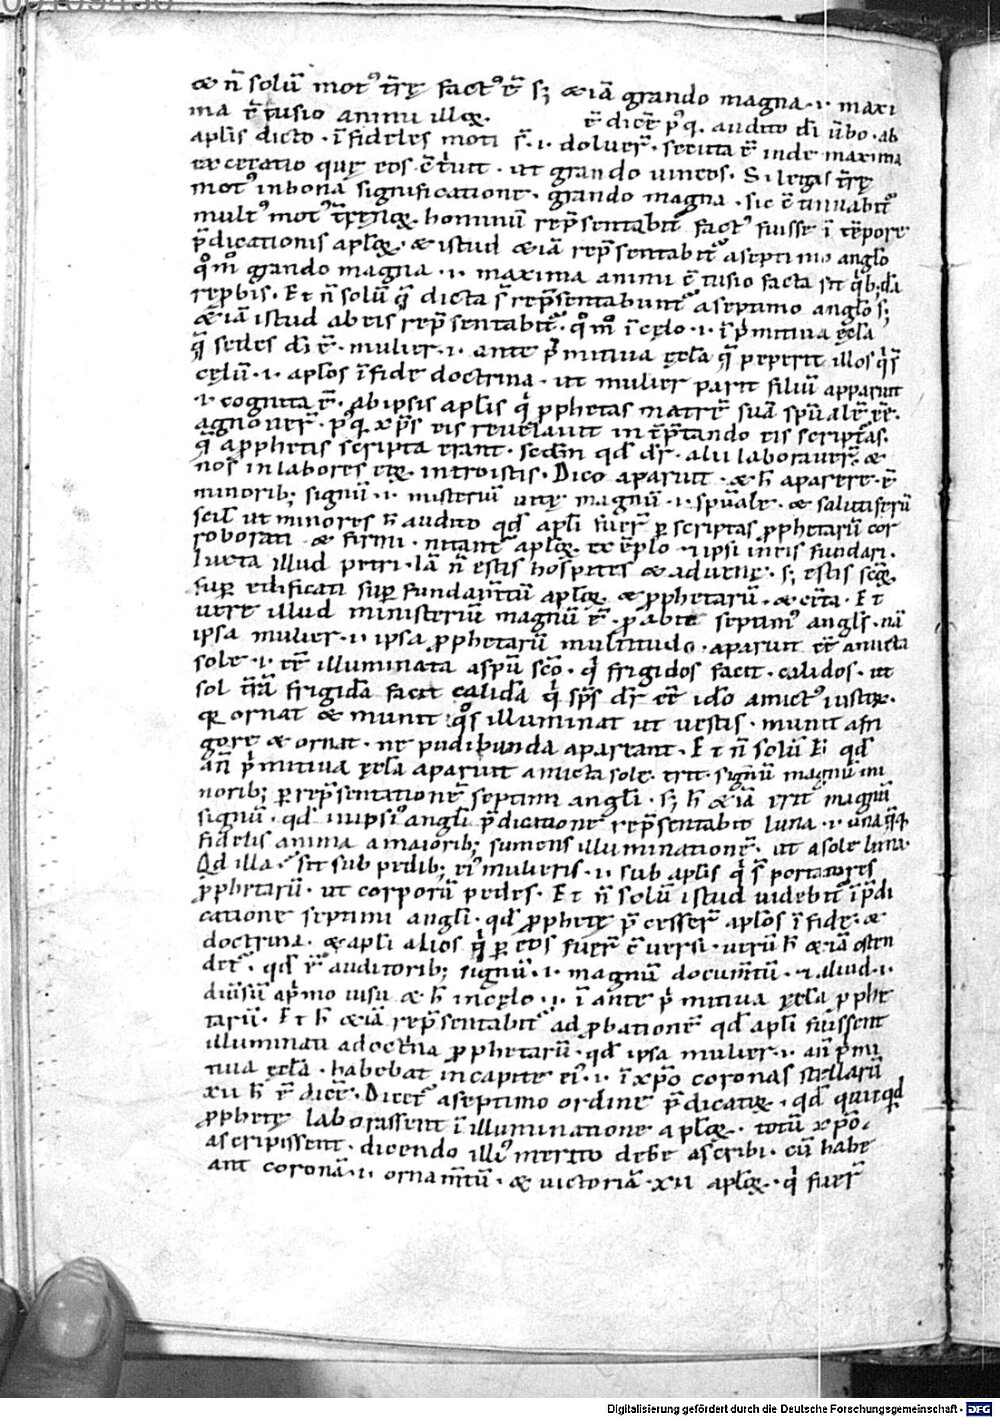 & n̄ solū mot᷒ t̄rę fact᷒ ē s; & iā grando magna · i · maxi
ma ē fusio animi illoꝝ. ē dicē pꝰq̨ audito dī ūbo · ab
aplīs dicto · īfideles moti s̄ · i · doluer̄ · secuta ē inde maxima
execratio quę eos ē · ut grando uineos · Si legas t̄rę
mot᷒ in bonā significatione · grando magna · sic
mult᷒ mot᷒ t̄reꝝ hominū rep̄sentabit᷒ fact᷒ fuisse ī tēpore
p̄dicationis aplōꝝ · & istud & iā rep̄sentabit᷒ a septimo anglo
qm̄ grando magna · i · maxima animi ē fusio facta sit qb; dā
rep̄bis · Et n̄ solū q̄ dicta s̄ rep̄sentabunt᷒ a septimo anglo s;
& iā istud ab eis rep̄sentabit᷒ · qm̄ ī cęlo · i · ī p̄mitiua ęcl̄a
q̄ sedes dī ē · mulier · i · ante p̄mitiua ęcl̄a q̄ peperit illos
cęlū · i · aplōs ī fide doctrina · ut mulier parit filiū apparuit
· i · cognita ē · ab ipsis aplīs q̇ pphetas matrē suā sp̄ualē ēē ·
agnouer̄ · pꝰq̨ xp̄s eis reuelauit int̄p̄tando eis script̄as ·
q̄ a pphetis scripta erant · scdm̄ qd dr̄ · alii laborauer̄ · &
nos in labores eoꝝ introistis · Dico aparuit · & h̄ aparere · ē
minorib; signū · i · misteriū magnū · i · sp̄uale · & salutiferū
scil̄ ut minores h̄ audito qd apl̄i fuer̄ p scriptas pphetarū cor
roborati & firmi · nitant᷒ aplōꝝ exēplo · & ipsi in eis fundari ·
Iuxta illud petri · Iā n̄ estis hospites & aduenę · s; estis
suꝑ edificati suꝑ fundam̄tū aplōꝝ & pphetarū · & cet̄a · Et
uere illud ministeriū magnū ē · septim᷒ angl̄s · nā
ipsa mulier · i · ipsa pphetarū multitudo · aparuit ēē amicta
sole · i · ēē illuminata a sp̄u sc̄o · q̇ frigidos facit · calidos · ut
sol t̄rā frigidā facit calidā q̇ sp̄s dr̄ ēē ido amict᷒ iustoꝝ ·
q̄ ornat & munit q̊s illuminat ut uestis · munit a fri
gore & ornat · ne pudibunda apareant · Et n̄ solū h̄ qd
an̄ p̄mitiua ęcl̄a aparuit amicta sole · erit · signū magnū mi
norib; p rep̄sentationē septimi angl̄i · s; h̄ & iā erit magnū
signū · qd in ipsi᷒ angl̄i p̄dicatione rep̄sentabit᷒ luna · i · una q̄q̨
fidelis anima a maiorib; sumens illuminationē · ut a sole luna ·
Qd illa · sit sub pedib; ei᷒ mulieris · i · sub aplīs q̇ s̄ portatores
pphetarū · ut corporū pedes · Et n̄ solū istud uidebit᷒ ī p̄di
catione septimi angl̄i · qd pphetę p̄cesser̄ aplōs ī fide · &
doctrina · & apl̄i alios q̇ p eos fuer̄ ūersi · uerū h̄ & iā osten
det᷒ · qd ē auditorib; signū · i · magnū docum̄tū · & aliud · i ·
diūsū a p̄mo uisu & h̄ in cęlo · i · ī ante p̄mitiua ęcl̄a pphe
tarū · Et h̄ & iā rep̄sentabit᷒ ad pbationē qd apl̄i fuissent
illuminati a doct̄na pphetarū · qd ipsa mulier · i · an̄ p̄mi
tiua ęcl̄a · habebat in capite ei᷒ · i · ī xp̄o coronas stellarū
xii h̄ ē dicē · Diceret᷒ a septimo ordine p̄dicatoꝝ · qd quicqd
pphetę laborassent ī illuminatione aplōꝝ · totū xp̄o
ascripissent · dicendo illi᷒ merito debe ascribi · cū habe
ant coronā · i · ornam̄tū · & uictoriā · xii aplōꝝ · q̇ fuer̄